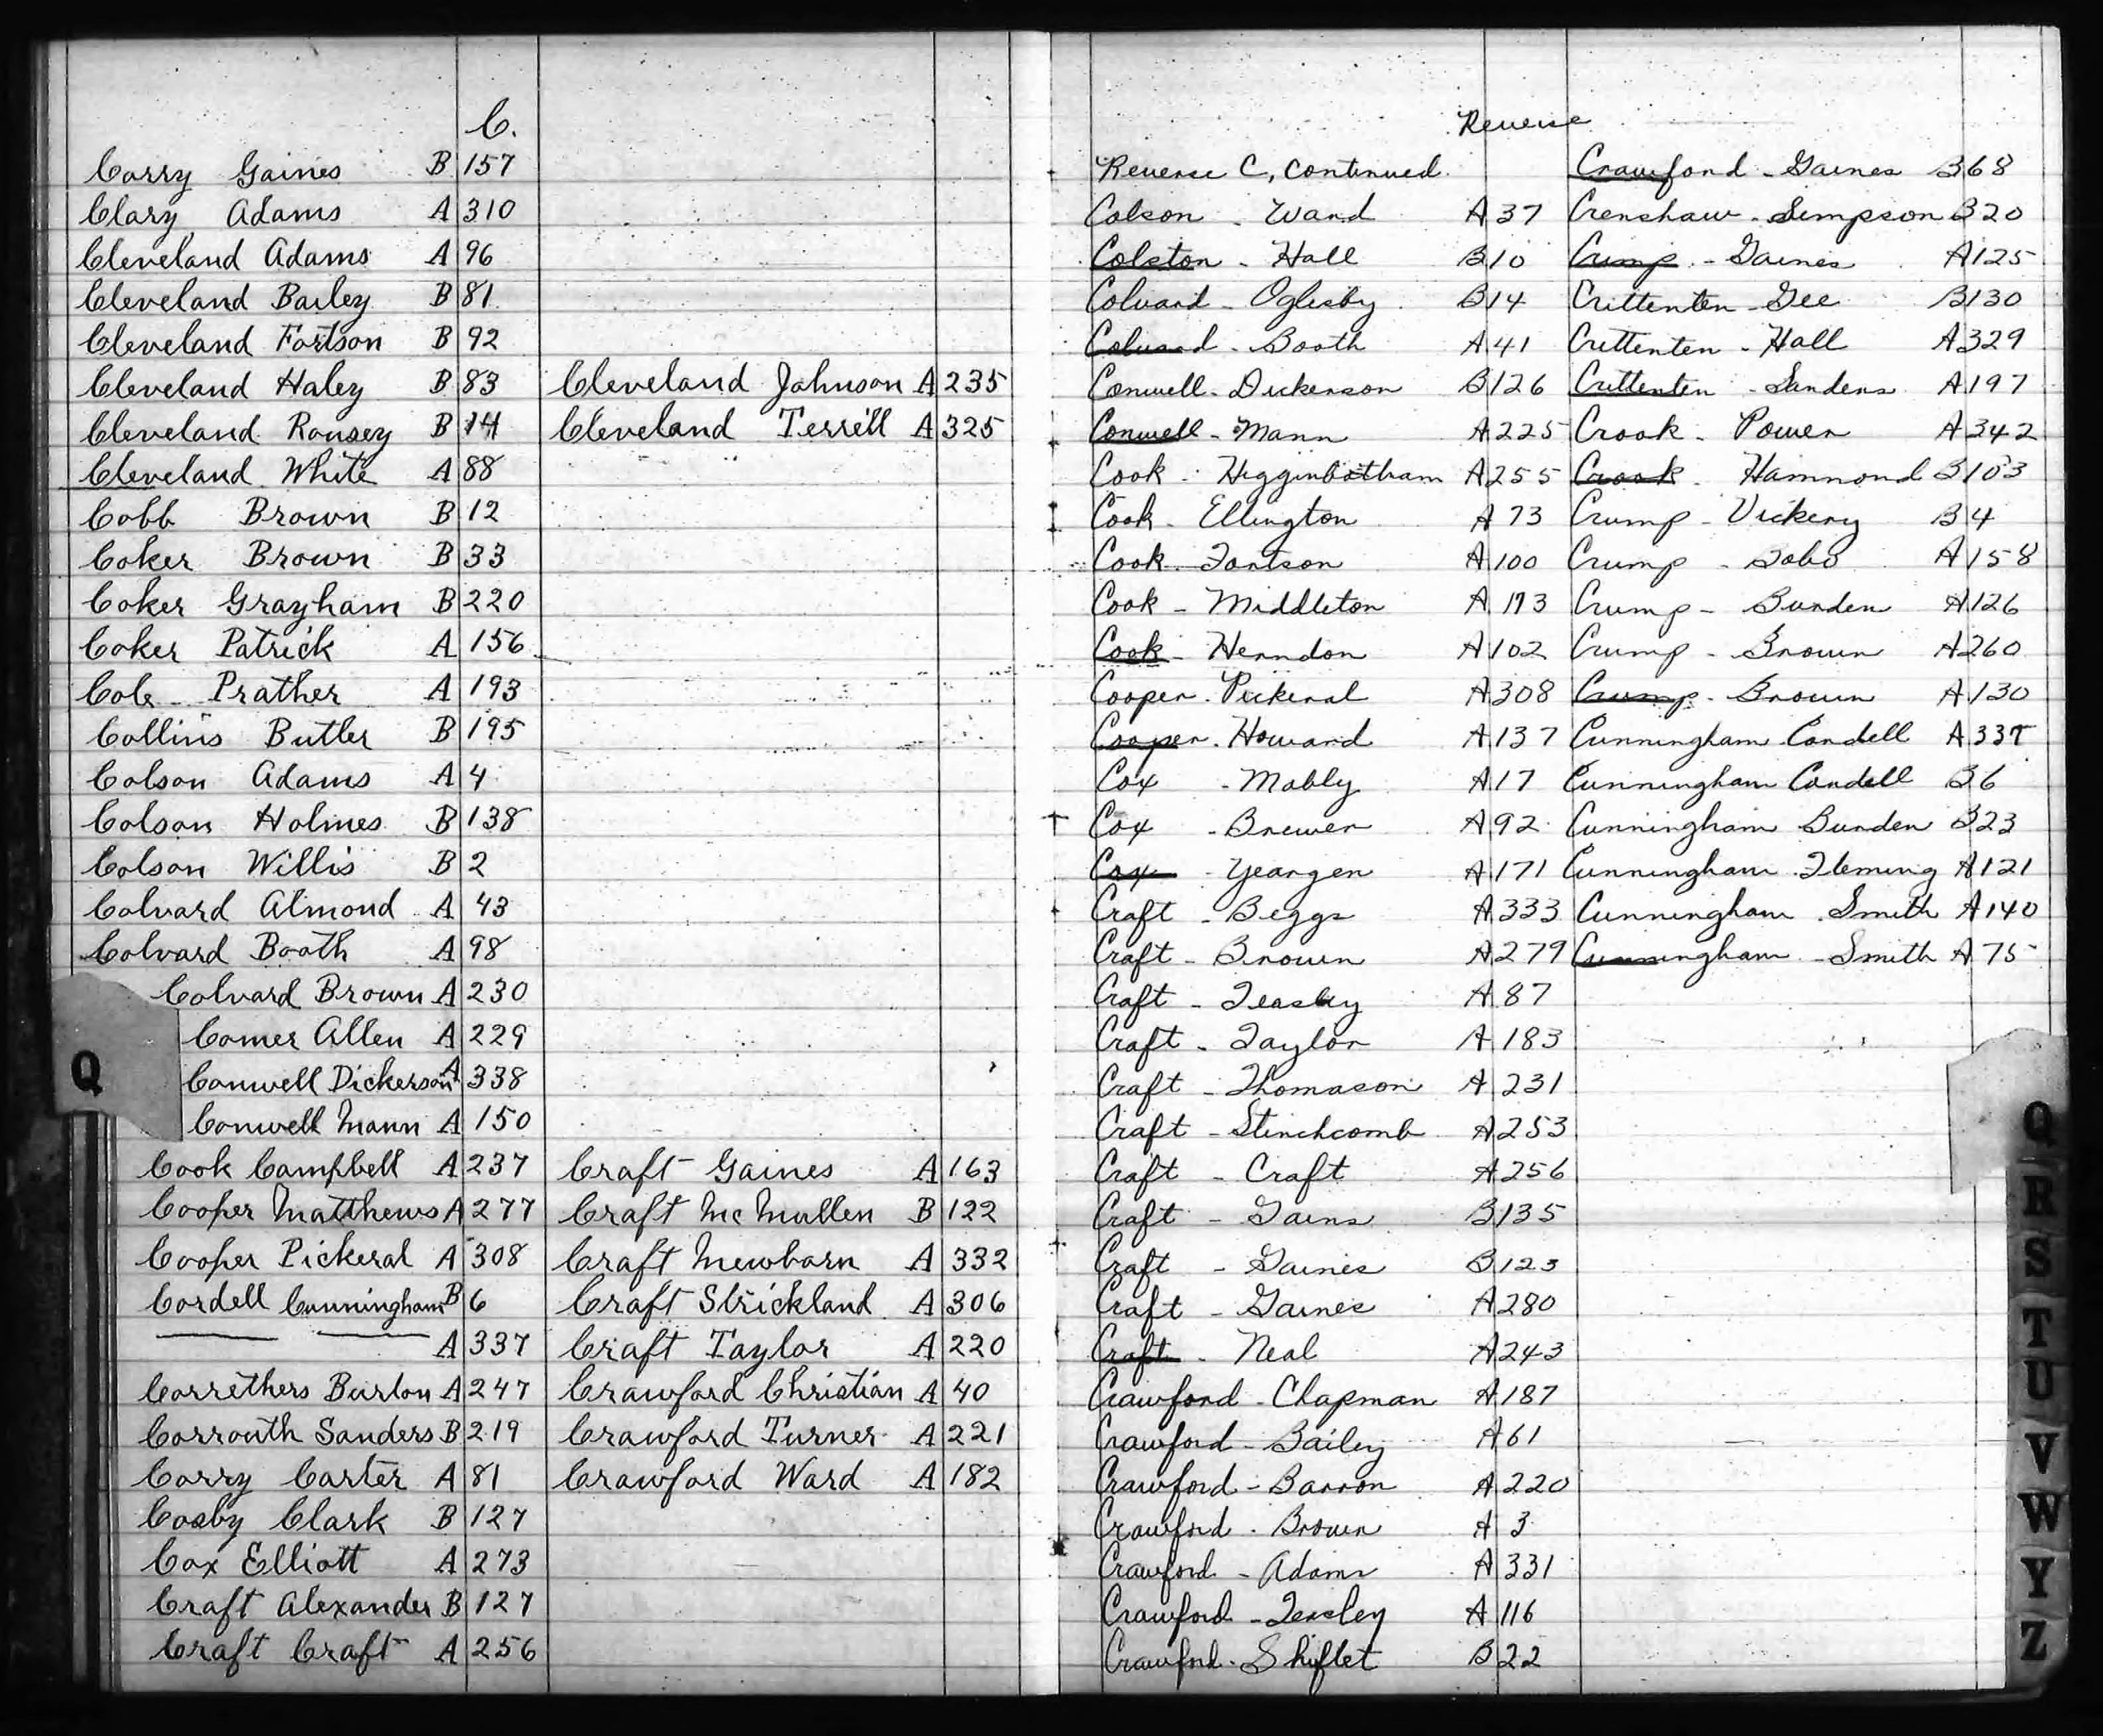 C.
Corry Gaines B 157
Clary Adams A 310
Cleveland Adams A 96
Cleveland Bailey B 81
Cleveland Fortson B 92
Cleveland Haley B 83
Cleveland Rousey B 14
Cleveland White A 88
Cobb Brown B 12
Coker Brown B 33
Coker Grayham B 220
Coker Patrick A 156
Cole Prather A 193
Collins Butler B 195
Colson Adams A 4
Colson Holmes B 138
Colson Willis B 2
Colvard Almond A 43
Colvard Booth A 98
Colvard Brown A 230
Comer Allen A 229
Conwell Dickerson A 338
Conwell Mann A 150
Cook Campbell A 237
Cooper Matthews A 277
Cooper Pickeral A 308
Cordell Cunningham B 6
A 337
Correthers Burton A 247
Corrouth Sanders B 219
Corry Carter A 81
Cosby Clark B 127
Cox Elliott A 273
Craft Alexander B 127
Craft Craft A 256
Cleveland Johnson A 235
Cleveland Terrell A 325
Craft Gaines A 163
Craft McMullen B 122
Craft Mewborn A 332
Craft Strickland A 306
Craft Taylor A 220
Crawford Christian A 40
Crawford Turner A 221
Crawford Ward A 182
Q
Reverse
Reverse C, continued.
Colson - Ward A 37
Colston - Hall B 10
Colvard - Oglesby B 14
Colvard - Booth A 41
Conwell - Dickerson B 126
Conwell - Mann A 225
Cook - Higginbotham A 255
Cook - Ellington A 73
Cook - Fortson A 100
Cook - Middleton A 193
Cook - Herndon A 102
Cooper - Pickeral A 308
Cooper - Howard A 137
Cox - Mobly A 17
Cox - Brewer A 92
Cox - Yeargen A 171
Craft - Beggs A 333
Craft - Brown A 279
Craft - Teasley A 87
Craft - Taylor A 183
Craft - Thomason A 231
Craft - Stinchcomb A 253
Craft - Craft A 256
Craft - Gains B 135
Craft - Gaines B 123
Craft - Gaines A 280
Craft - Neal A 243
Crawford - Chapman A 187
Crawford - Bailey A 61
Crawford - Barron A 220
Crawford - Brown A 3
Crawford - Adams A 331
Crawford - Teasley A 116
Crawford - Shiflet B 22
Crawford - Gaines B 68
Crenshaw - Simpson B 20
Crump - Gaines A 125
Crittenten - Gee B 130
Crittenten - Hall A 329
Crittenten - Sanders A 197
Crook - Power A 342
Crook - Hammond B 103
Crump - Vickery B 4
Crump - A 158
Crump - Burden A 126
Crump - Brown A 260
Crump - Brown A 130
Cunningham Cordell A 337
Cunningham Cordell B 6
Cunningham Burden B 23
Cunningham Fleming A 121
Cunningham Smith A 140
Cunningham - Smith A 75
Q
R
S
T
U
V
W
Y
Z